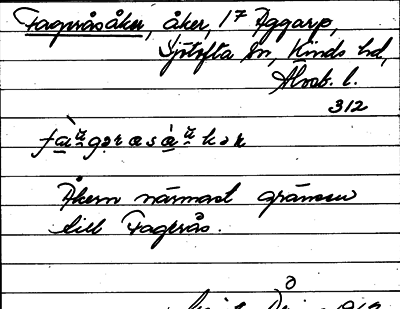 Fageråsåker, åker, 17 Aggarp,
Sjötofta sn, Kinds hd,
Älvsb. l.
312
Åkern närmast gränsen
till Fagerås.